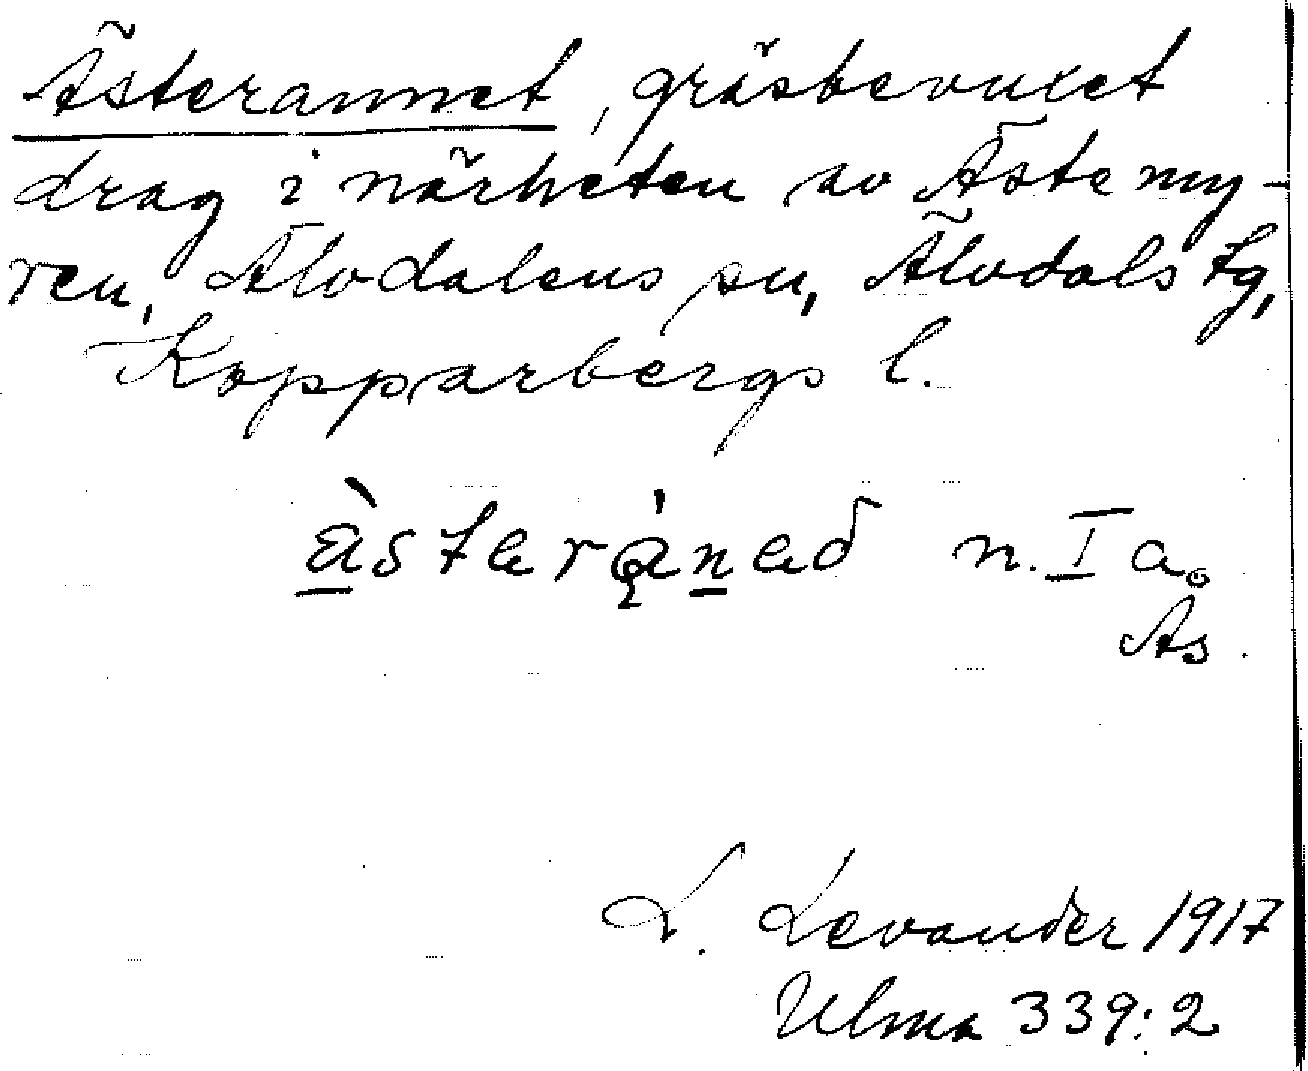 Ästerannet, gräsbevuxet
drag i närheten av Ästemy-
ren, Älvdalens sn, Älvdals tg,
Kopparbergs l.
n. I a.
Ås.
L. Levander 1917
Ulma 339:2